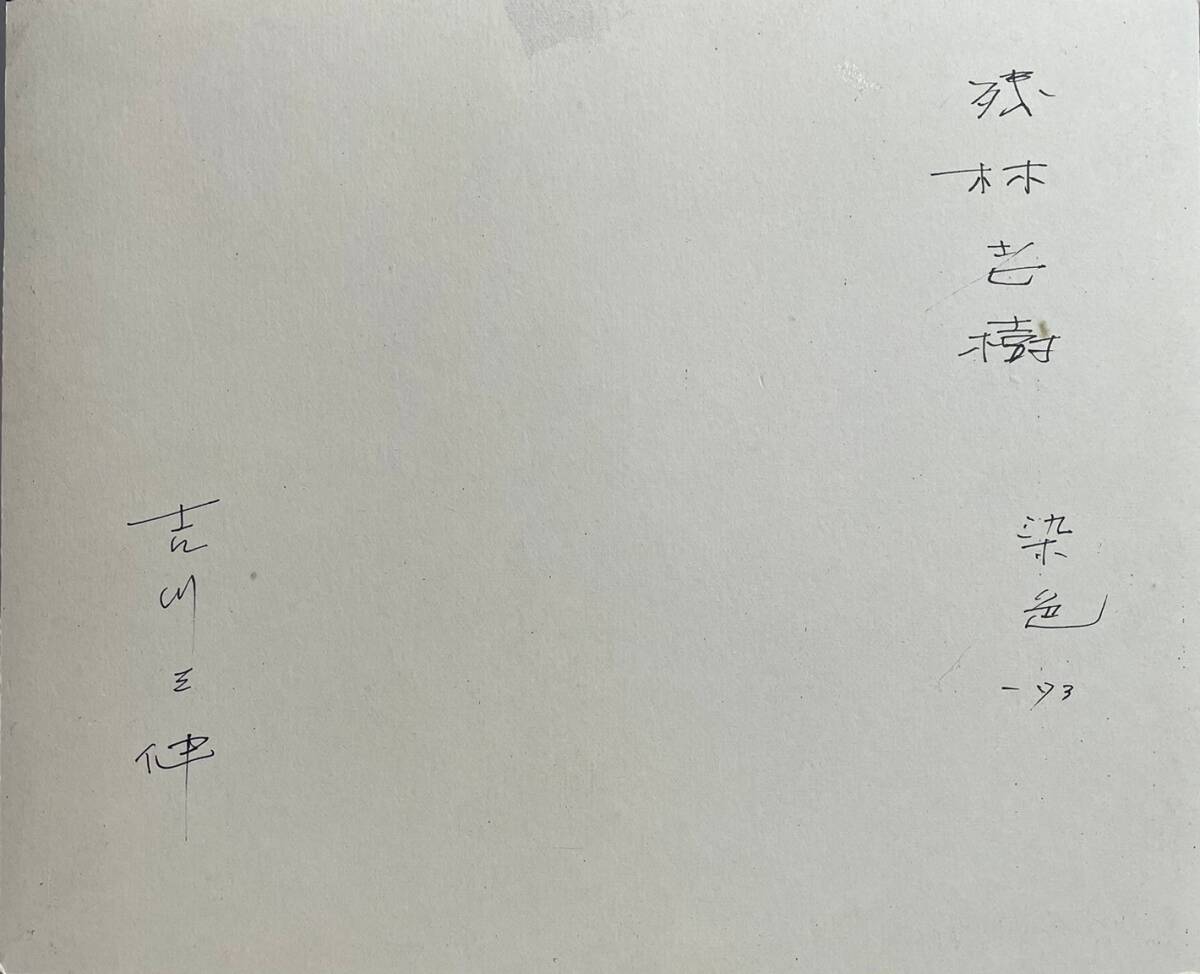 残林老樹
染色
-'73
吉川三伸